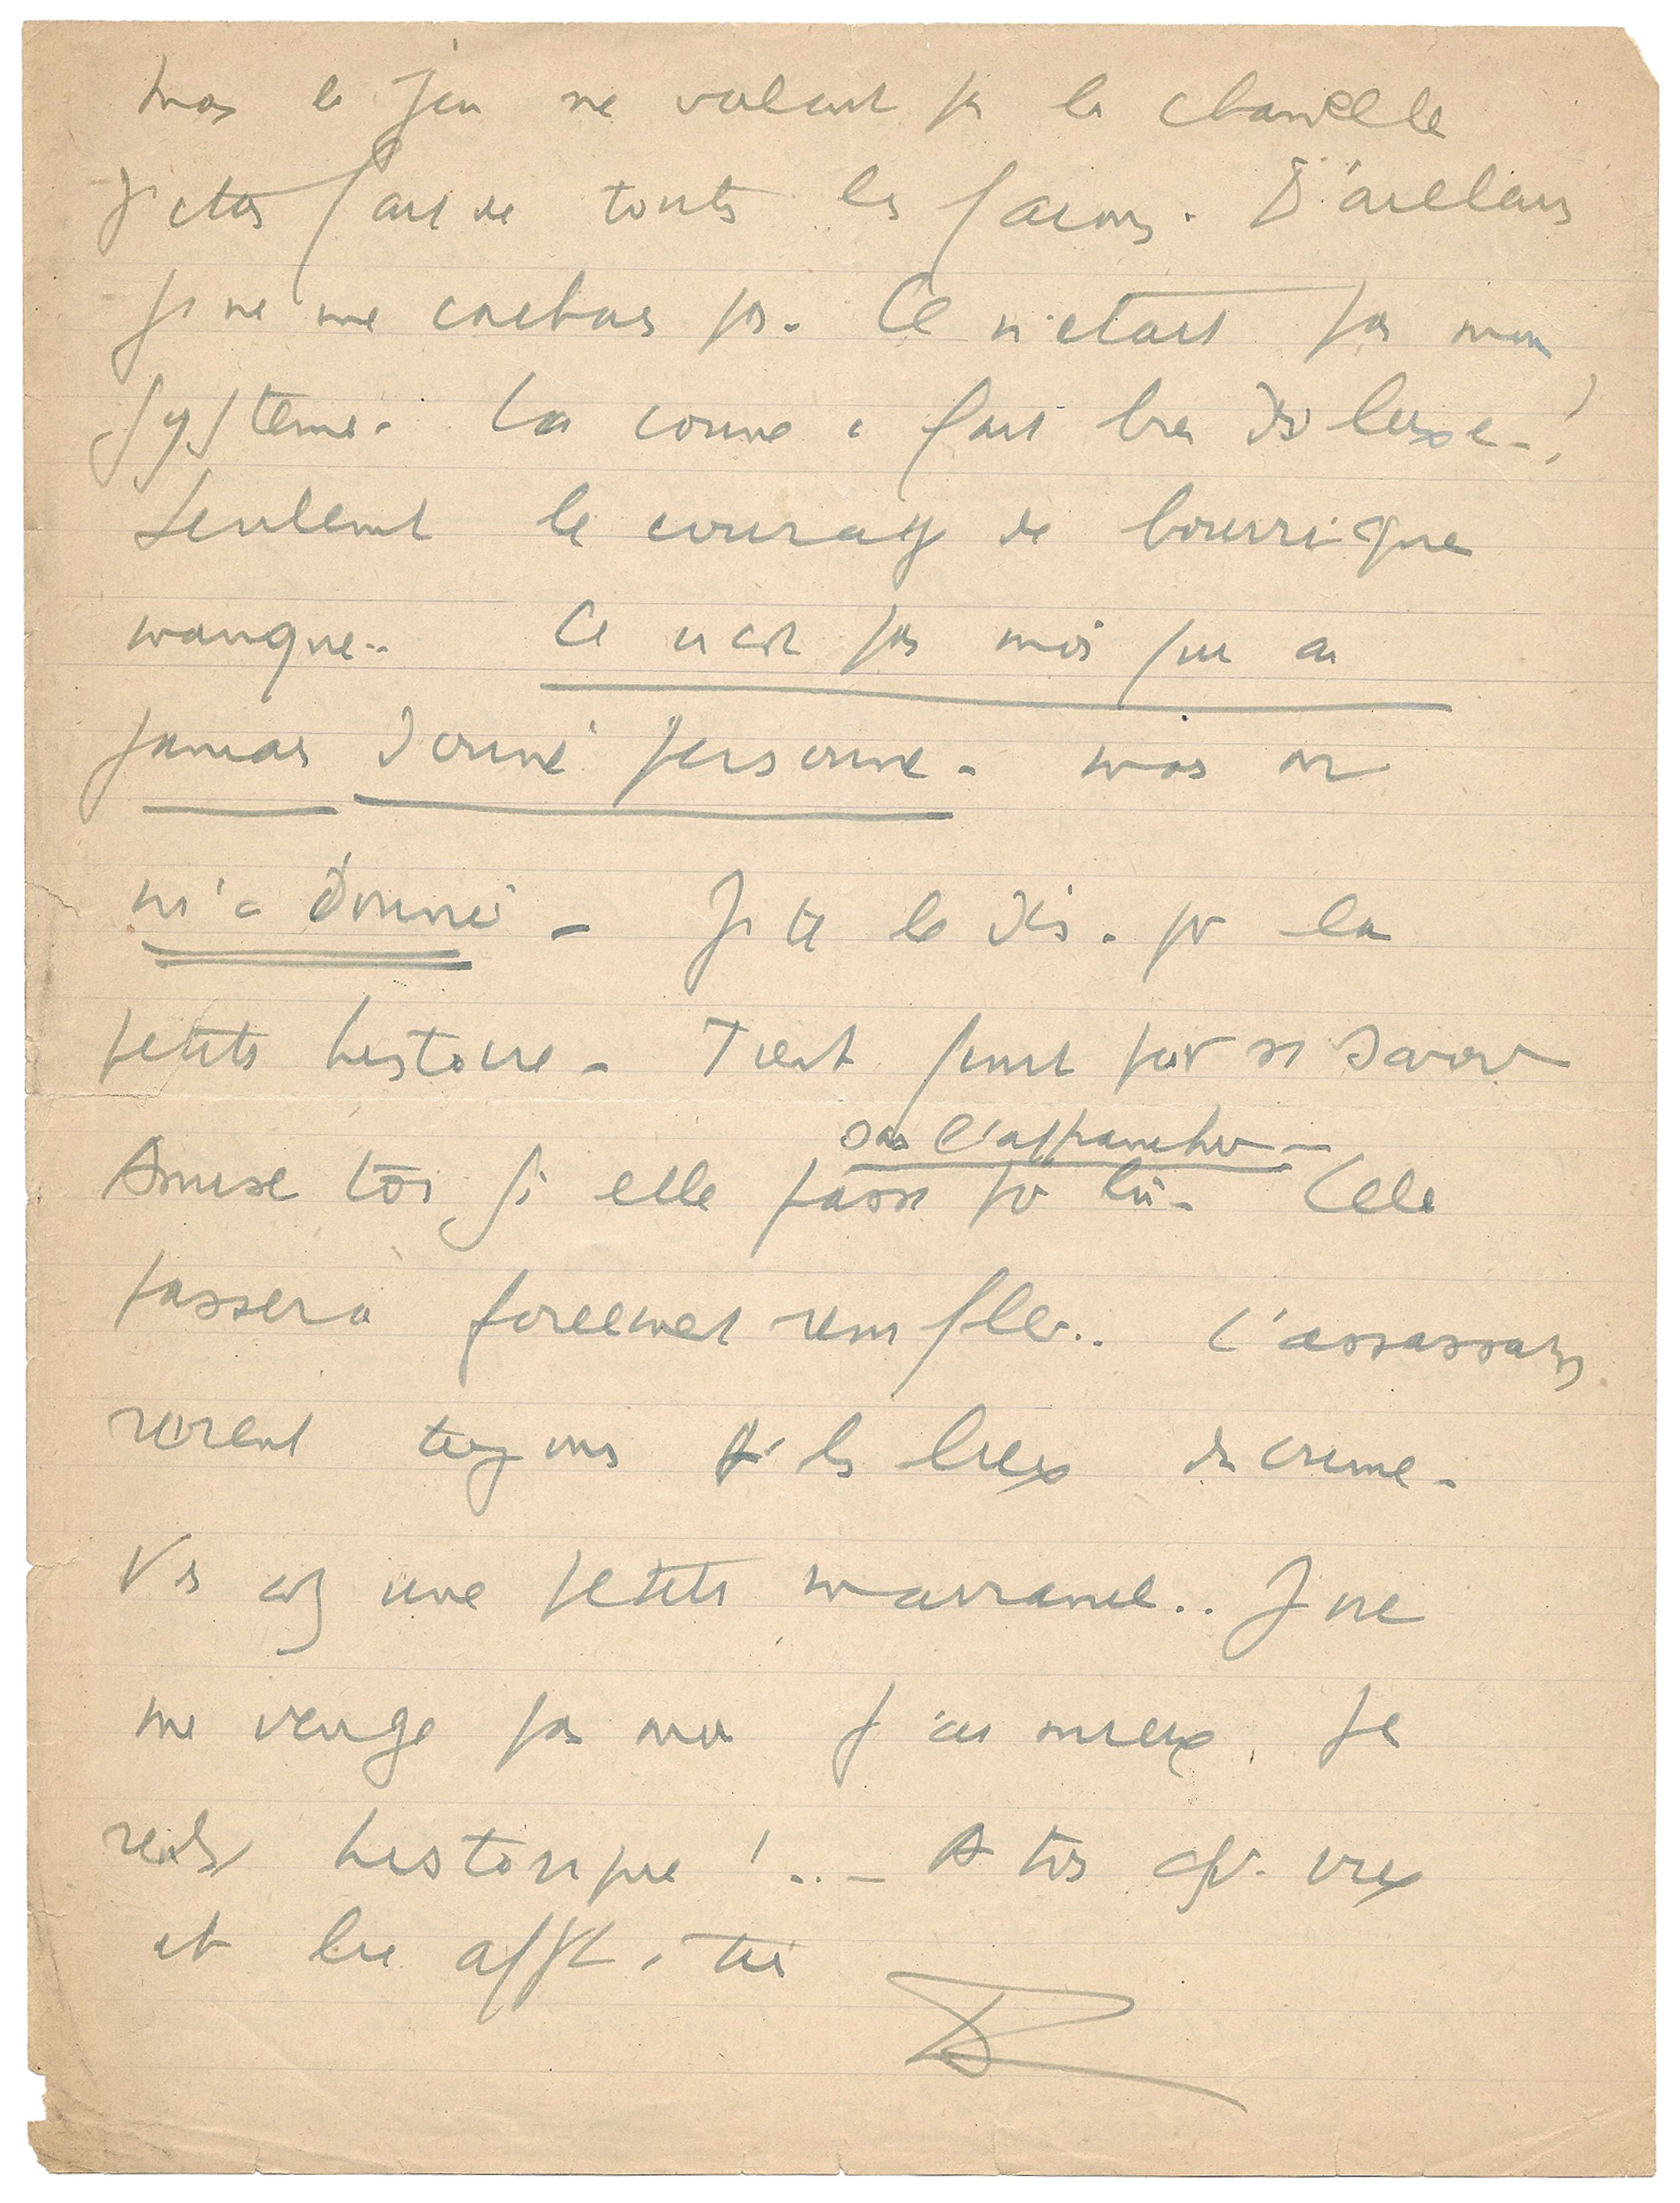 mais le jeu ne valait pas la chandelle
J'étais fait de toutes les façons. D'ailleurs
je ne me cachais pas. Ce n'était pas mon
système. La conne a fait bien
Seulement le courage de bourrique
manque.. Ce n'est pas moi qui ai
jamais donné personne - mais on
m'a donné - Je te le dis. pr la
petite histoire - Tient
sans l'affranchir -
Amuse toi si elle passe pr lui - Cela
passera forcement .. L'assassin
revient toujours sr les lieux du crime -
Vs avez une petite .. Je ne
me venge pas moi j'ai mieux. Je
historique !.. - A toi cpr. vieux
et bien affect. ité